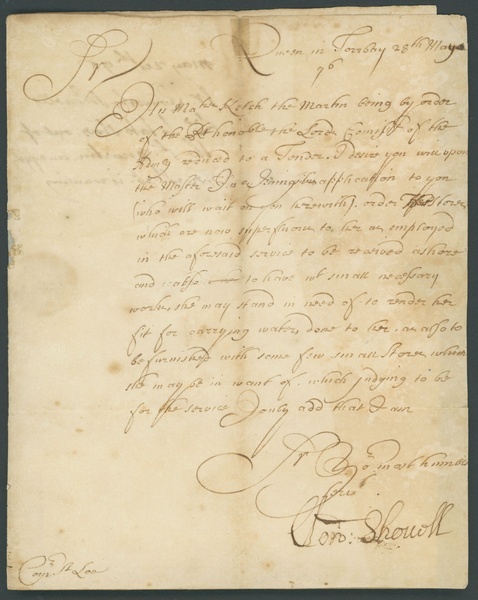 Sr Queen in Torrbay 28th May
96
His Mats Ketch the Martin being by order
of the Rt honoble the Lords Comissrs of the
Admty reduced to a Tender, I desire you will upon
the Master Jennings application to you
(who will wait on you herewith), order Stores,
which are now superfluous to her as employed
in the aforesaid service to be received ashore
and cause to have wt small necessary
works she may stand in need of to render her
fit for carrying water, done to her, as also to
be furnished with some few small Stores which
she may be in want of, which judging to be
for the service I only add that I am
Sr
Yor most humble
Servt
Clowd: Shovell
Comr St Loe